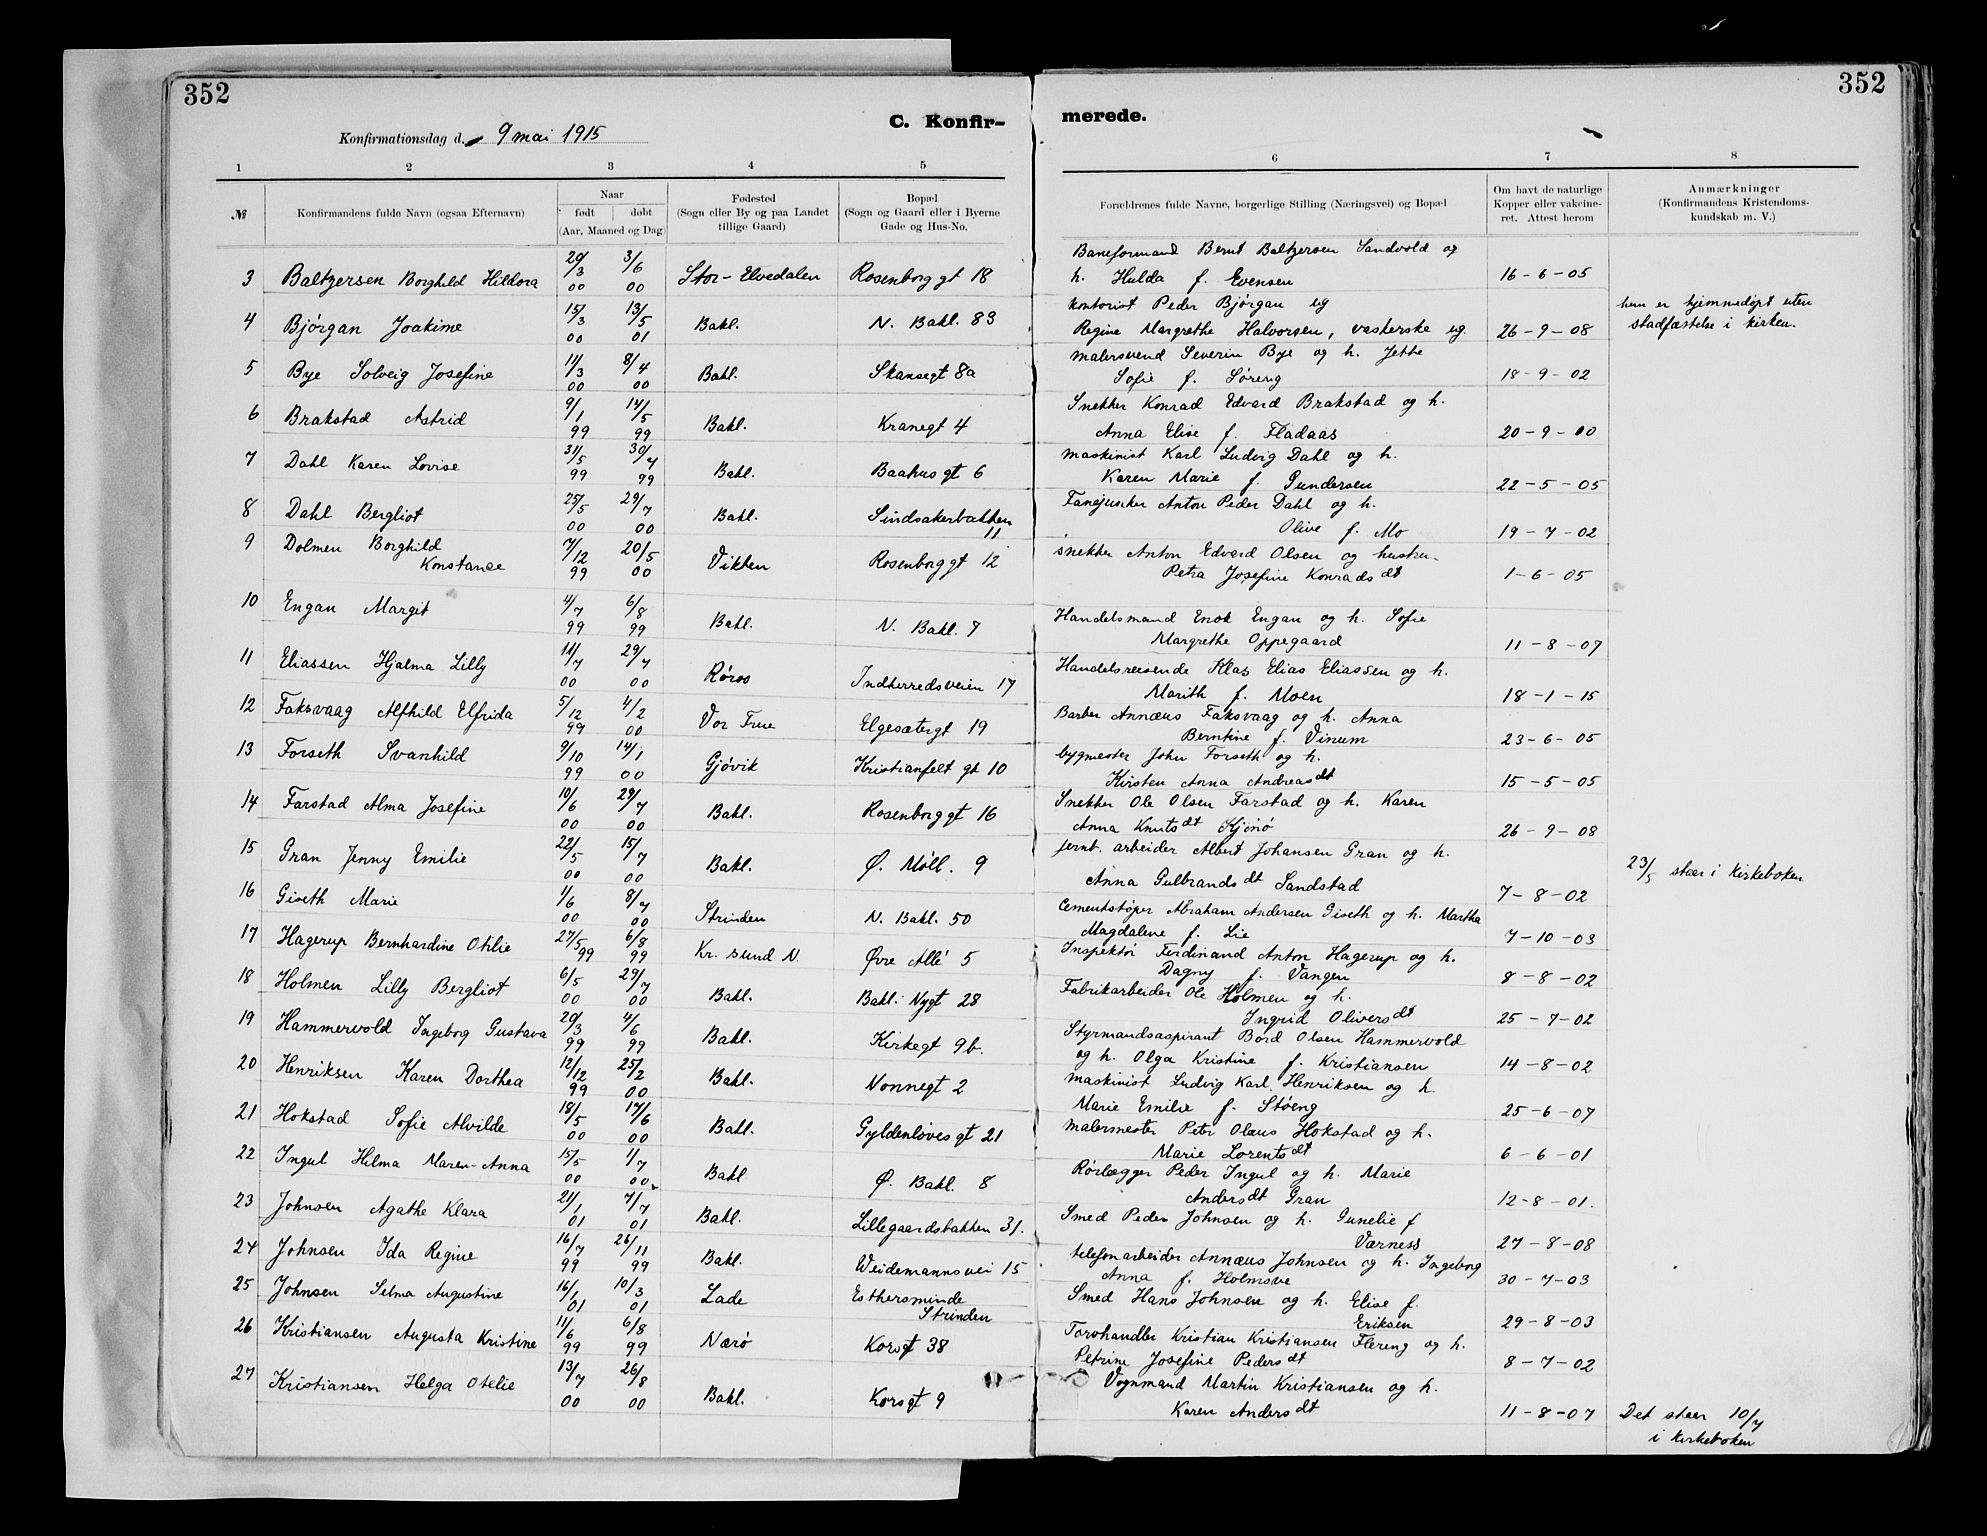 352
352
C. Konfir-
merede.
Konfirmationsdag d. 9 mai 1915
1 2 3 4 5 6 7 8
№
Konfirmandens fulde Navn (ogsaa Efternavn)
Naar
født døbt
(Aar, Maaned og Dag)
Fødested
(Sogn eller By og paa Landet
tillige Gaard)
Bopæl
(Sogn og Gaard eller i Byerne
Gade og Hus-No.
Forældrenes fulde Navne, borgerlige Stilling (Næringsvei) og Bopæl
Om havt de naturlige
Kopper eller vakcine-
ret. Attest herom
Anmærkninger
(Konfirmandens Kristendoms-
kundskab m. V.)
3 Baltzersen Borghild Hildora 20/3 00 3/6 00 Stor-Elvedalen Rosenborg gt 18
Baneformand Bernt Baltzersen Sandvold og
h. Hulda f. Evensen 16-6-05
4 Bjørgan Joakime 15/3 00 13/5 01 Bakl. N. Bakl. 83
kontorist Peder Bjørgan og
Regine Margrethe Halvorsen, vaskerske ug. 26-9-08
hun er hjemmedøpt uten
stadfæstelse i kirken.
5 Bye Solveig Josefine 11/3 00 8/4 00 Bakl. Skansegt 8a
malersvend Severin Bye og h. Jette
Sofie f. Søreng 18-9-02
6 Brakstad Astrid 9/1 99 14/5 99 Bakl. Kranegt 4
Snekker Konrad Edvard Brakstad og h.
Anna Elise f. Fladaas 20-9-00
7 Dahl Karen Lovise 31/5 99 30/7 99 Bakl. Baahus gt 6
maskinist Karl Ludvig Dahl og h.
Karen Marie f. Gundersen 22-5-05
8 Dahl Bergliot 25/5 00 29/7 00 Bakl. Sindsakerbakken
11
Fanejunker Anton Peder Dahl og h.
Olive f. Mo 19-7-02
9 Dolmen Borghild
Konstanse 7/12 99 20/5 00 Vikten Rosenborg gt 12
snekker Anton Edvard Olsen og hustru
Petra Josefine Konradsdt 1-6-05
10 Engan Margit 4/7 99 6/8 99 Bakl. N. Bakl. 7
Handelsmand Enok Engan og h. Sofie
Margrethe Oppegaard 11-8-07
11 Eliassen Hjalma Lilly 11/7 00 29/7 00 Røros Indherredsveien 17
Handelsreisende Klas Elias Eliassen og h.
Marith f. Moen 18-1-15
12 Faksvaag Alfhild Elfrida 5/12 99 4/2 00 Vor Frue Elgesætergt 19
Barber Annæus Faksvaag og h. Anna
Berntine f. Vinum 23-6-05
13 Forseth Svanhild 9/10 99 14/1 00 Gjøvik Kristianfelt gt 10
bygmester John Forseth og h.
Kirsten Anna Andreasdt 15-5-05
14 Farstad Alma Josefine 10/6 00 29/7 00 Bakl. Rosenborg gt 16
Snekker Ole Olsen Farstad og h. Karen
Anna Knutsdt Kjønø 26-9-08
15 Gran Jenny Emilie 22/5 00 15/7 00 Bakl. Ø. Møll. 9
jernb. arbeider Albert Johansen Gran og h.
Anna Gulbrandsdt Sandstad 7-8-02
23/5 staar i kirkeboken
16 Giseth Marie 1/6 00 8/7 00 Strinden N. Bakl. 50
Cementstøper Abraham Andersen Giseth og h. Martha
Magdalene f. Lie 7-10-03
17 Hagerup Bernhardine Otilie 27/5 99 6/8 99 Kr. sund N. Øvre Allé 5
Inspektør Ferdinand Anton Hagerup og h.
Dagny f. Vangen 8-8-02
18 Holmen Lilly Bergliot 6/5 00 29/7 00 Bakl. Bakl. Nygt 28
Fabrikarbeider Ole Holmen og h.
Ingrid Oliversdt 25-7-02
19 Hammervold Ingeborg Gustava 20/3 99 4/6 99 Bakl. Kirkegt 9b.
Styrmandsaspirant Bord Olsen Hammervold
og h. Olga Kristine f. Kristiansen 14-8-02
20 Henriksen Karen Dorthea 12/12 99 25/2 00 Bakl. Nonnegt 2
maskinist Ludvig Karl Henriksen og h.
Marie Emilie f. Støeng 25-6-07
21 Hokstad Sofie Alvilde 18/5 00 17/6 00 Bakl. Gyldenløves gt 21
malermester Peter Olaus Hokstad og h.
Marie Lorentsdt 6-6-01
22 Ingul Hilma Maren-Anna 15/5 00 1/7 00 Bakl Ø. Bakl. 8
Rørlægger Peder Ingul og h. Marie
Andersdt Gran 12-8-01.
23 Johnsen Agathe Klara 21/1 01 7/7 01 Bakl. Lillegaardsbakken 31.
Smed Peder Johnsen og h. Gunelie f
Værness 27-8-08
24 Johnsen Ida Regine 16/7 99 26/11 99 Bakl. Weidemannsvei 15
telefonarbeider Annæus Johnsen og h. Ingeborg
Anna f. Holmsve 30-7-03
25 Johnsen Selma Augustine 16/1 01 10/3 01 Lade Esthersminde
Strinden
Smed Hans Johnsen og h. Elise f.
Eriksen 29-8-03
26 Kristiansen Augusta Kristine 11/6 99 6/8 99 Nærø Korsgt 38
Torvhandler Kristian Kristiansen Flereng og h.
Petrine Josefine Pedersdt 8-7-02
27 Kristiansen Helga Otelie 13/7 00 26/8 00 Bakl. Korsgt 9
Vognmand Martin Kristiansen og h.
Karen Andersdt 11-8-07
Det staar 10/7
i kirkeboken